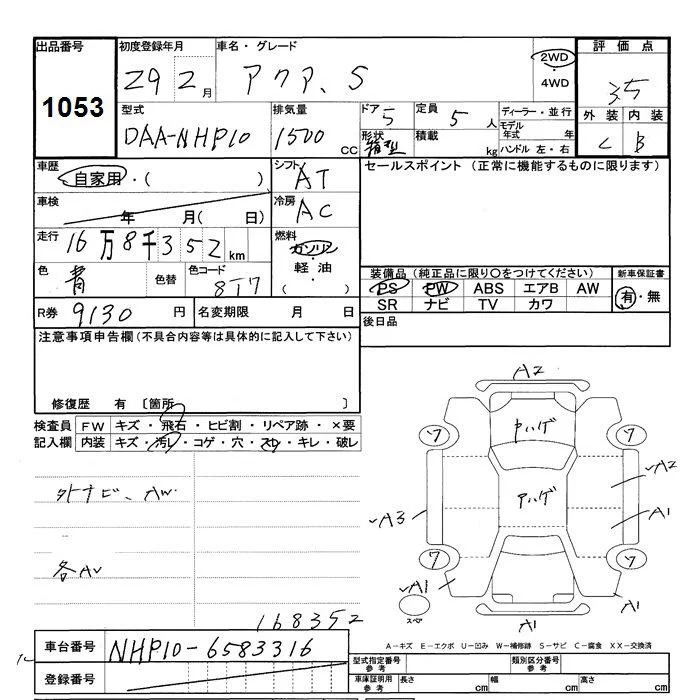 出品番号
1053
初度登録年月
29 2月
車名・グレード
アクア、S
2WD
・
4WD
評価点
3.5
外装 内装
C B
型式
DAA-NHP10
排気量
1500 CC
ドア 5
形状 箱型
定員 5 人
積載 kg
ディーラー・並行
モデル年式 年
ハンドル 左・右
車歴
自家用・( )
シフト AT
セールスポイント (正常に機能するものに限ります)
車検
年 月( 日)
冷房 AC
走行 16万8千352km
燃料
ガソリン
・
軽油
・
( )
色 青 色替 色コード 8T7
装備品 (純正品に限り〇をつけてください)
PS PW ABS エアB AW
SR ナビ TV カワ
新車保証書
有・無
R券 9130 円 名変期限 月 日
後日品
注意事項申告欄 (不具合内容等は具体的に記入して下さい)
修復歴 有 〔箇所 〕
検査員 FW キズ・飛石・ヒビ割・リペア跡・×要
記入欄 内装 キズ・汚レ・コゲ・穴・スレ・キレ・破レ
外ナビ、AW.
各AU
168352
A2
ワ ワ
ヤハゲ
アハゲ
A2
A3 A1
ワ ワ
A1 A1
スペア
A1
車台番号 NHP10-6583316
登録番号
A-キズ E-エクボ U-凹み W-補修跡 S-サビ C-腐食 XX-交換済
型式指定番号 参考 類別区分番号 参考
車庫証明用 参考 長さ cm 幅 cm 高さ cm